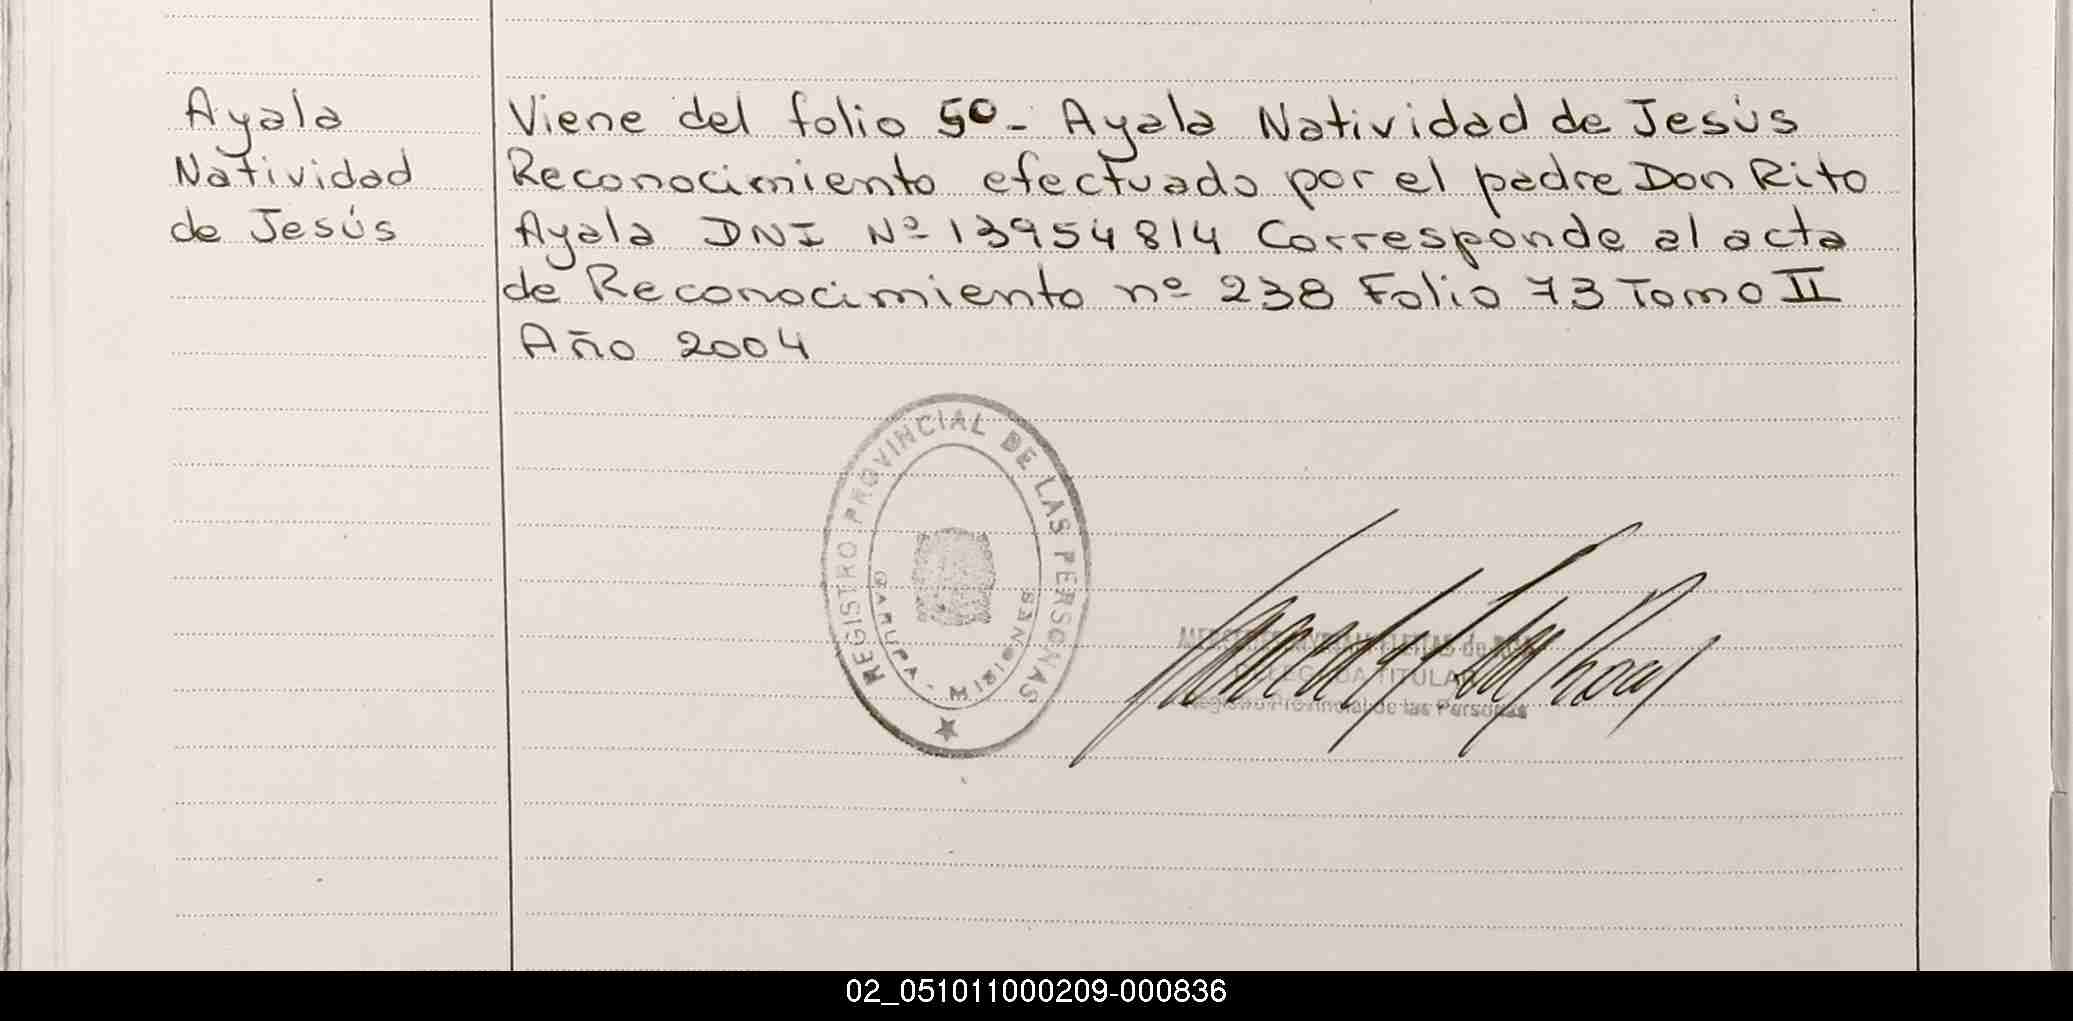 Ayala
Natividad
de Jesús
Viene del folio 50- Ayala Natividad de Jesús
Reconocimiento efectuado por el padre Don Rito
Ayala DNI Nº 13954814 Corresponde al acta
de Reconocimiento nº 238 Folio 73 Tomo II
Año 2004
REGISTRO PROVINCIAL DE LAS PERSONAS
GARUPA - MISIONES
de
DELEGADA TITULAR
Registro Provincial de las Personas
02_051011000209-000836